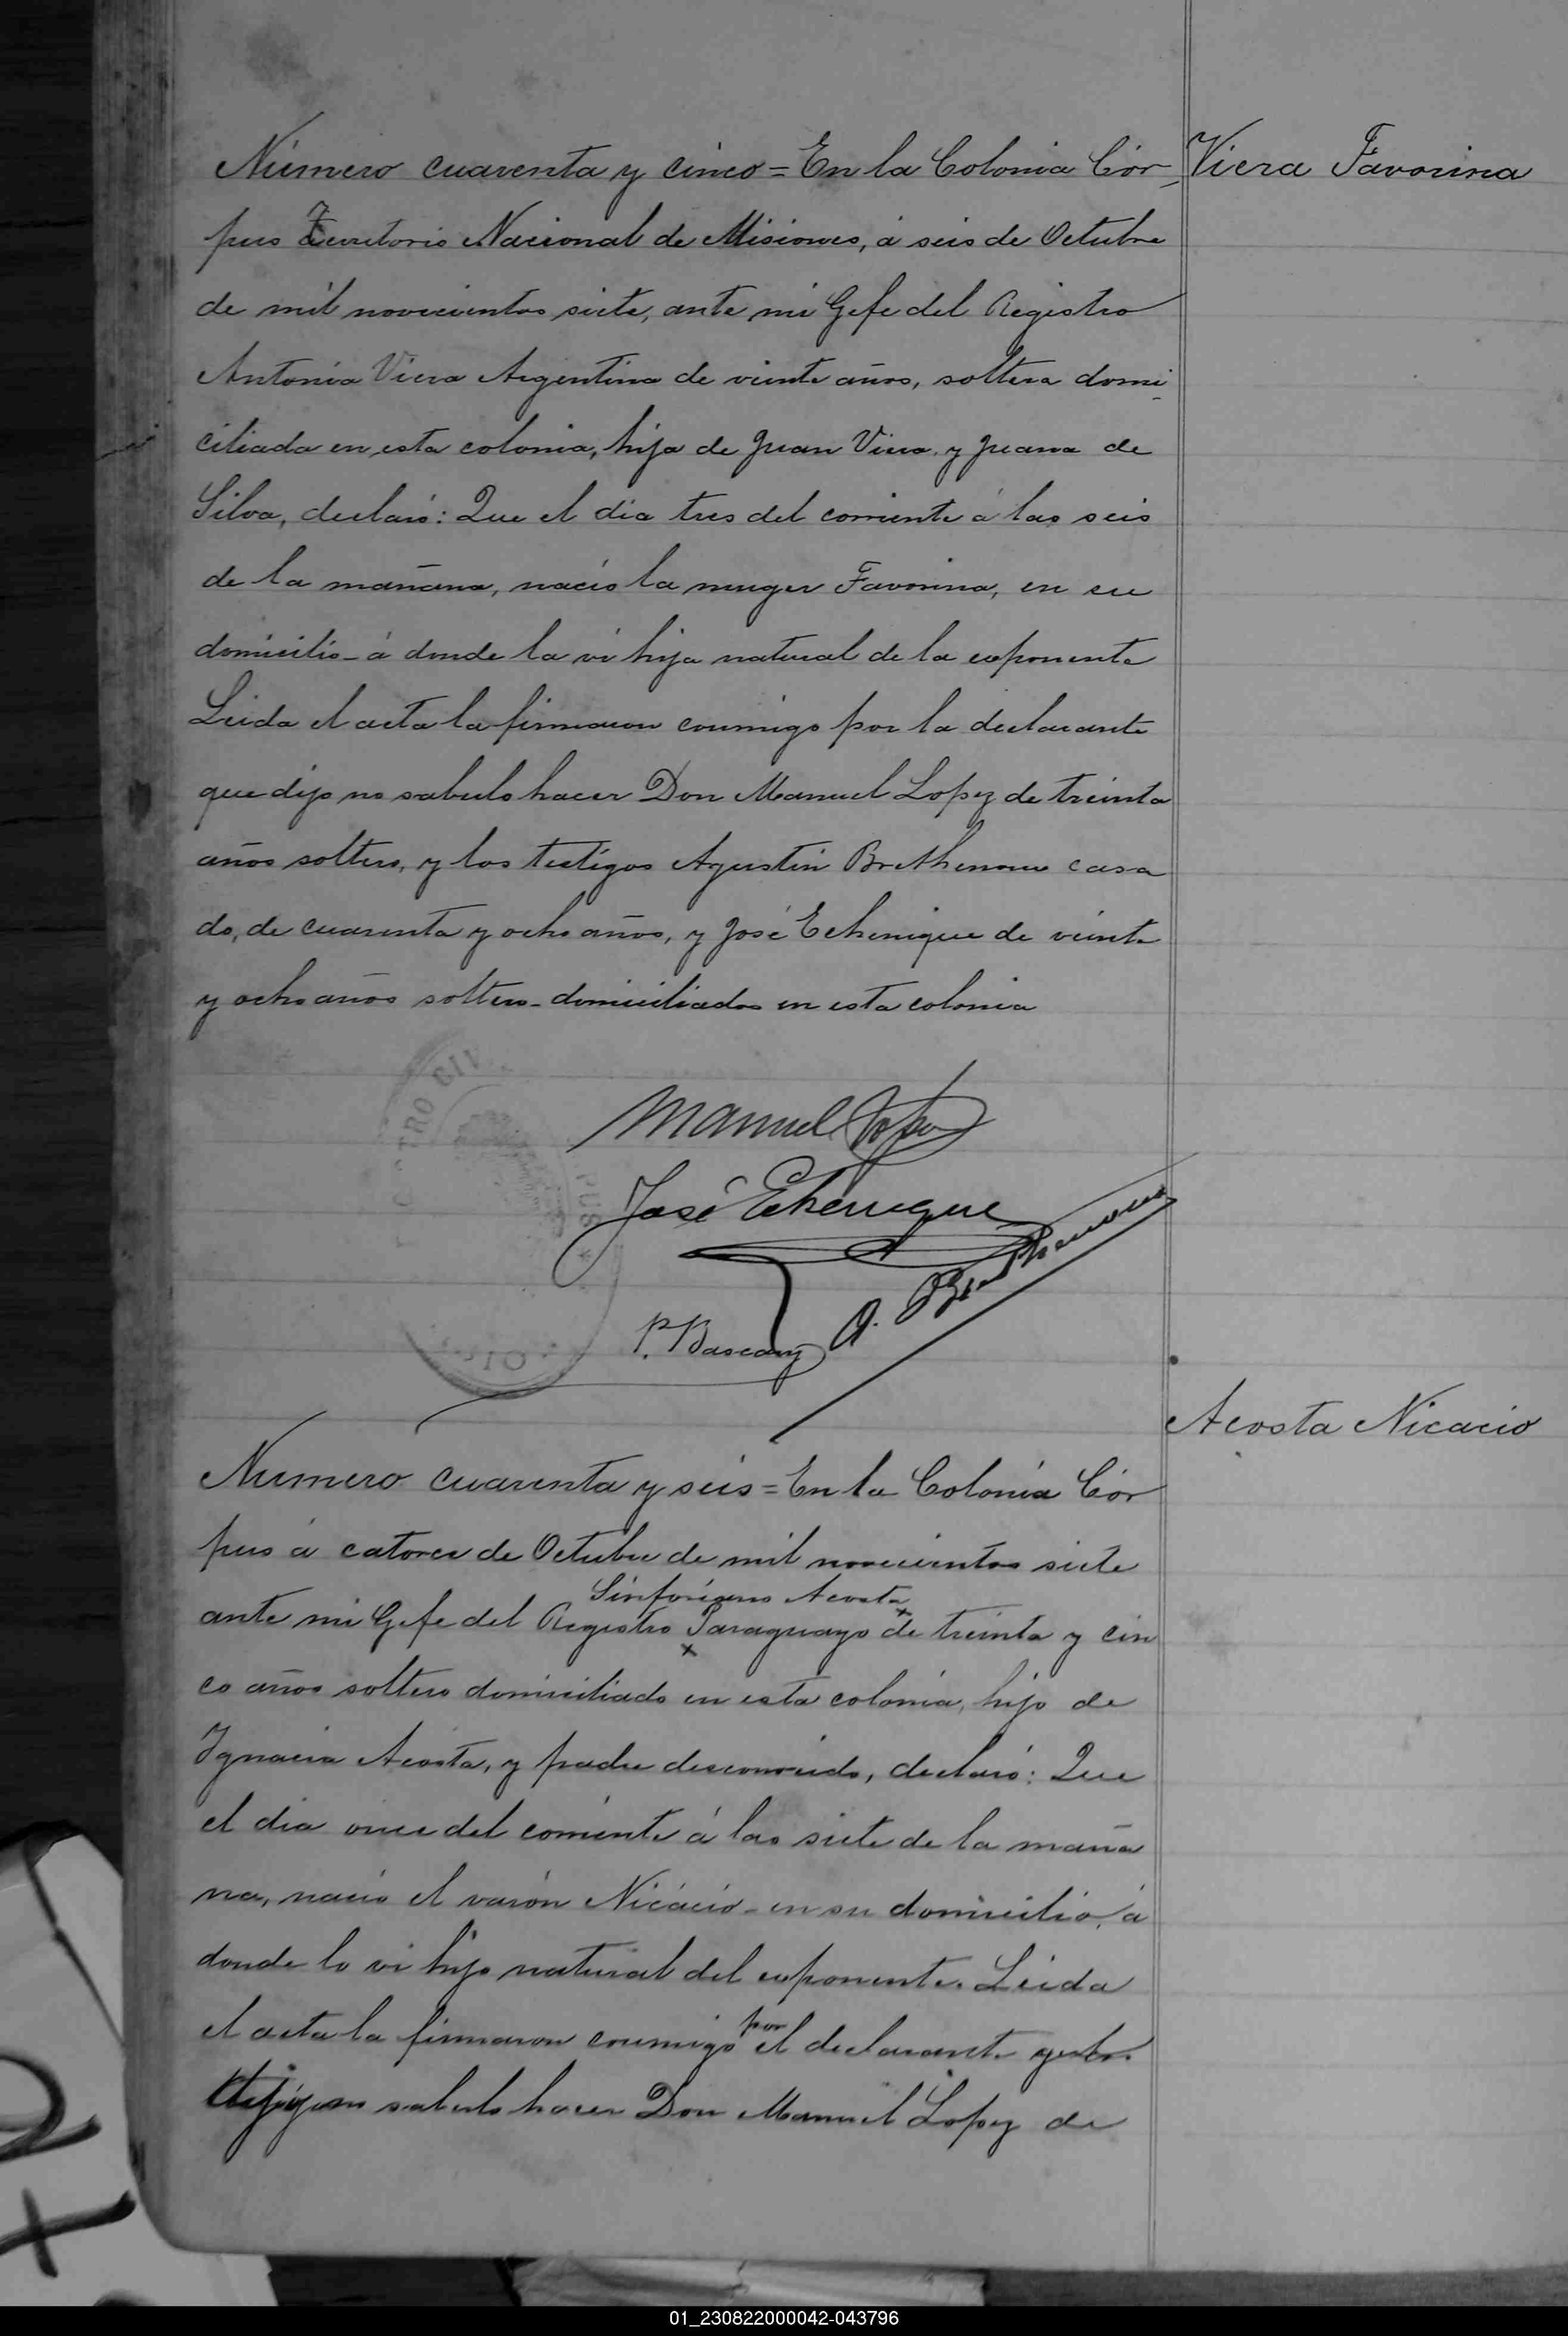 Número cuarenta y cinco = En la Colonia Cór-
Viera Favorina
pus Territorio Nacional de Misiones, á seis de Octubre
de mil novecientos siete, ante mi Gefe del Registro
Antonia Viera Argentina de veinte años, soltera domi-
ciliada en esta colonia, hija de Juan Viera y Juana de
Silva, declaró: Que el dia tres del corriente á las seis
de la mañana, nacio la muger Favorina, en su
domicilio - á donde la vi hija natural de la exponente
Leida el acta la firmaron conmigo por la declarante
que dijo no saberlo hacer Don Manuel Lopez de treinta
años soltero, y los testigos Agustin casa
do, de cuarenta y ocho años, y José Echenique de veinte
y ocho años soltero - domiciliados en esta colonia
Manuel Lopez
José Echenique
P. Bascary A.
Acosta Nicacio
Numero cuarenta y seis = En la Colonia Cór
pus á catorce de Octubre de mil novecientos siete
Sinforiano Acosta
ante mi Gefe del Registro x Paraguayo x de treinta y cin
co años soltero domiciliado en esta colonia, hijo de
Ignacia Acosta, y padre desconocido, declaró: Que
el dia once del corriente á las siete de la maña
na, nacio el varón Nicácio - en su domicilio, á
donde lo vi hijo natural del exponente. Leida
el acta la firmaron conmigo por el declarante
saberlo hacer Don Manuel Lopez de
01_230822000042-043796